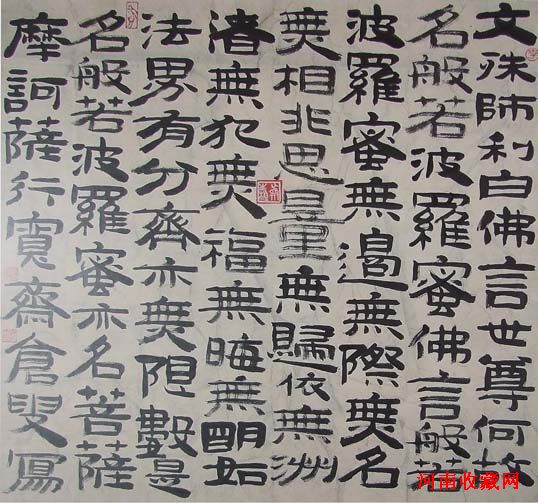 文殊師利白佛言世尊何故
名般若波羅蜜佛言般若
波羅蜜無邊無際無名
無相非思量無歸依無洲
渚無犯無福無晦無明如
法界有分齊亦無限數是
名般若波羅蜜亦名菩薩
摩訶薩行齋倉叟寫
河南收藏网